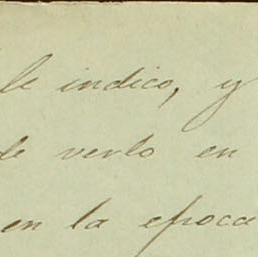 le indico, y
de verlo en
en la epoca